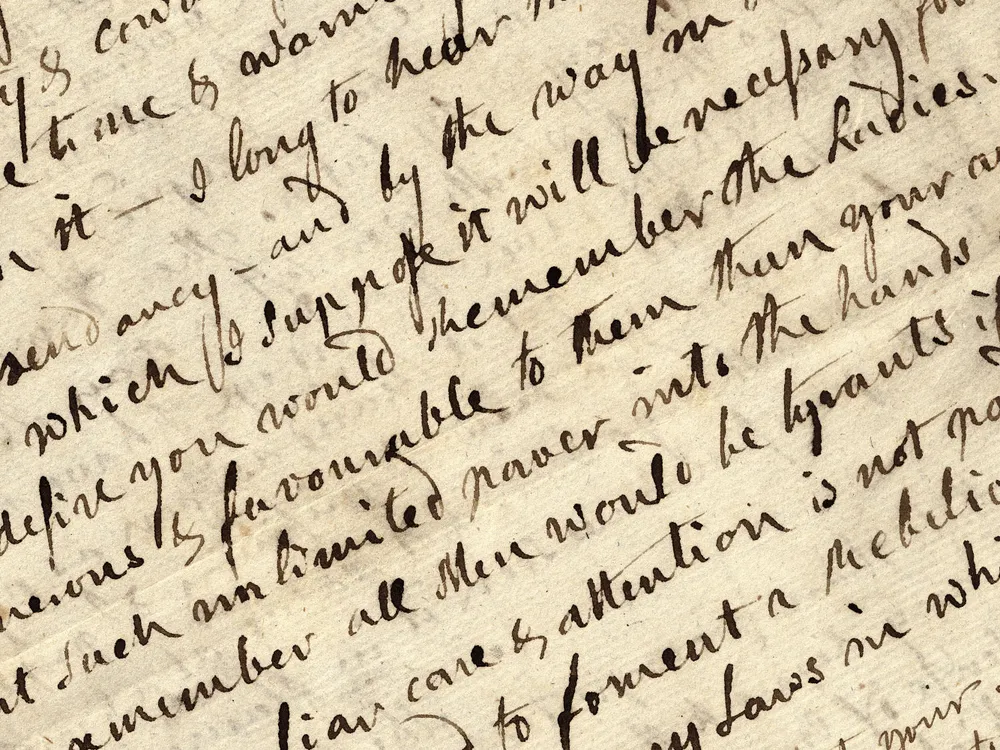 & cow
time & warm
it — I long to hear
sendancy — and by the way in
which I suppose it will be necessary for
desire you would Remember the Ladies.
nerous & favourable to them than your an
nt such unlimited power into the hands
emember all Men would be tyrants if
liar care & attention is not pa
to foment a Rebelio
ny Laws in whi
your